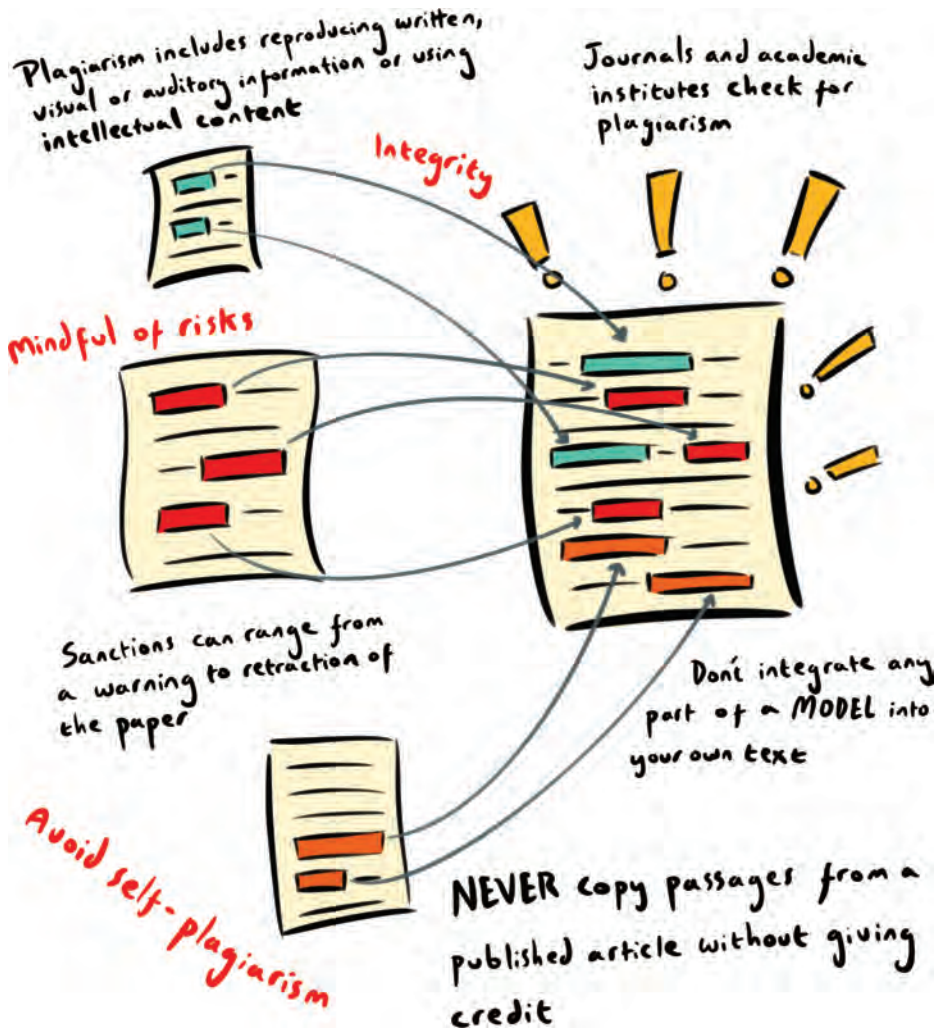 Plagiarism includes reproducing written,
visual or auditory information or using
intellectual content
Journals and academic
institutes check for
plagiarism
Integrity
Mindful of risks
Sanctions can range from
a warning to retraction of
the paper
Don't integrate any
part of a MODEL into
your own text
Avoid self-plagiarism
NEVER copy passages from a
published article without giving
credit